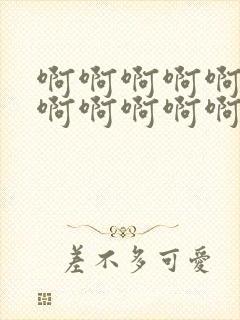 啊啊啊啊啊
啊啊啊啊啊
差不多可愛